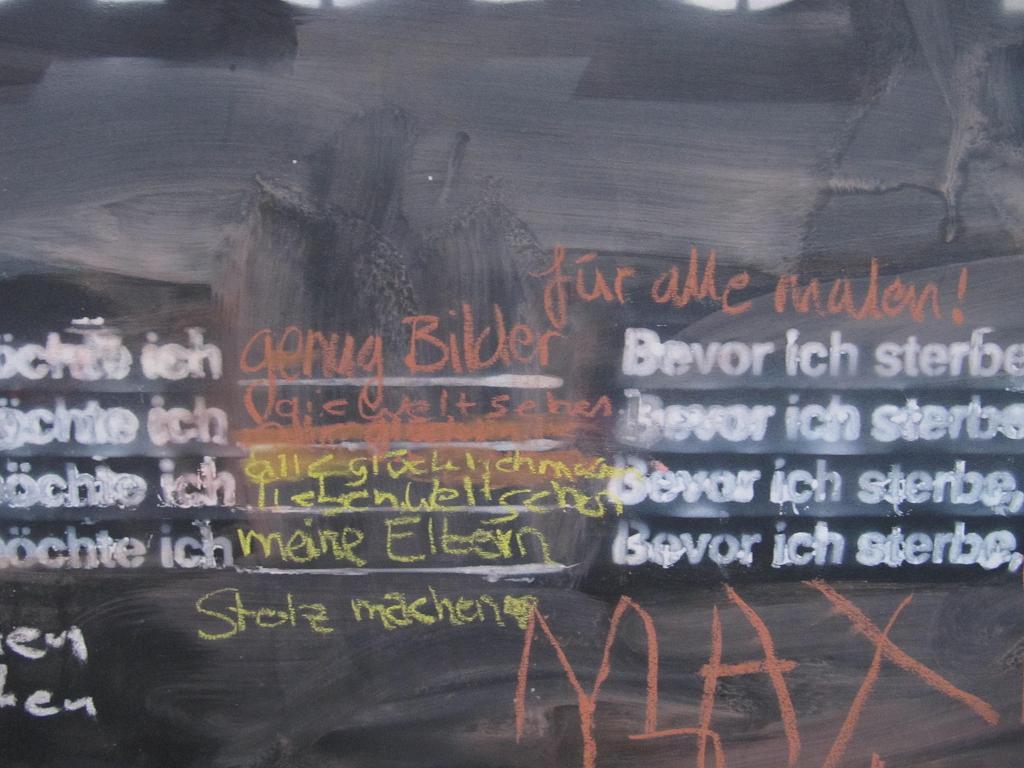 für alle malen!
öchte ich genug Bilder Bevor ich sterbe
öchte ich die Welt sehen Bevor ich sterbe
öchte ich alle glücklich Bevor ich sterbe,
öchte ich meine Eltern Bevor ich sterbe,
Stolz machen
MAX